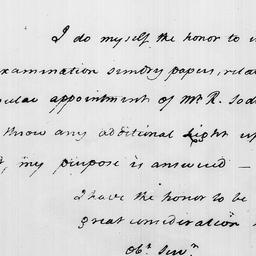 I do myself the honor to
examination sundry papers, rela
appointment of Mr. R. Sod
throw any additional light up
my purpose is answered —
I have the honor to be
great consideration
Obt. Servt.